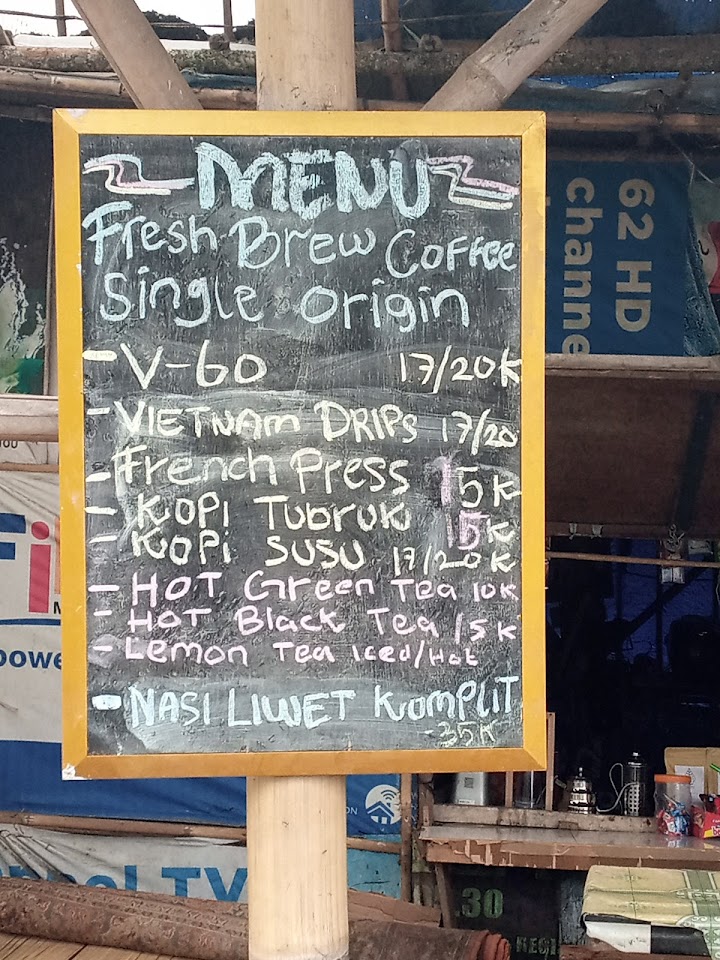 MENU
Fresh Brew Coffee
Single Origin
- V-60 17/20K
- VIETNAM DRIPS 17/20
- French Press 15K
- KOPI TUBRUK 15K
- KOPI SUSU 17/20K
- HOT Green Tea 10K
- HOT Black Tea 15K
- Lemon Tea Iced/Hot
- NASI LIWET KOMPLIT
-35K
62 HD
channe
Fi
powe
nnel TV
.30